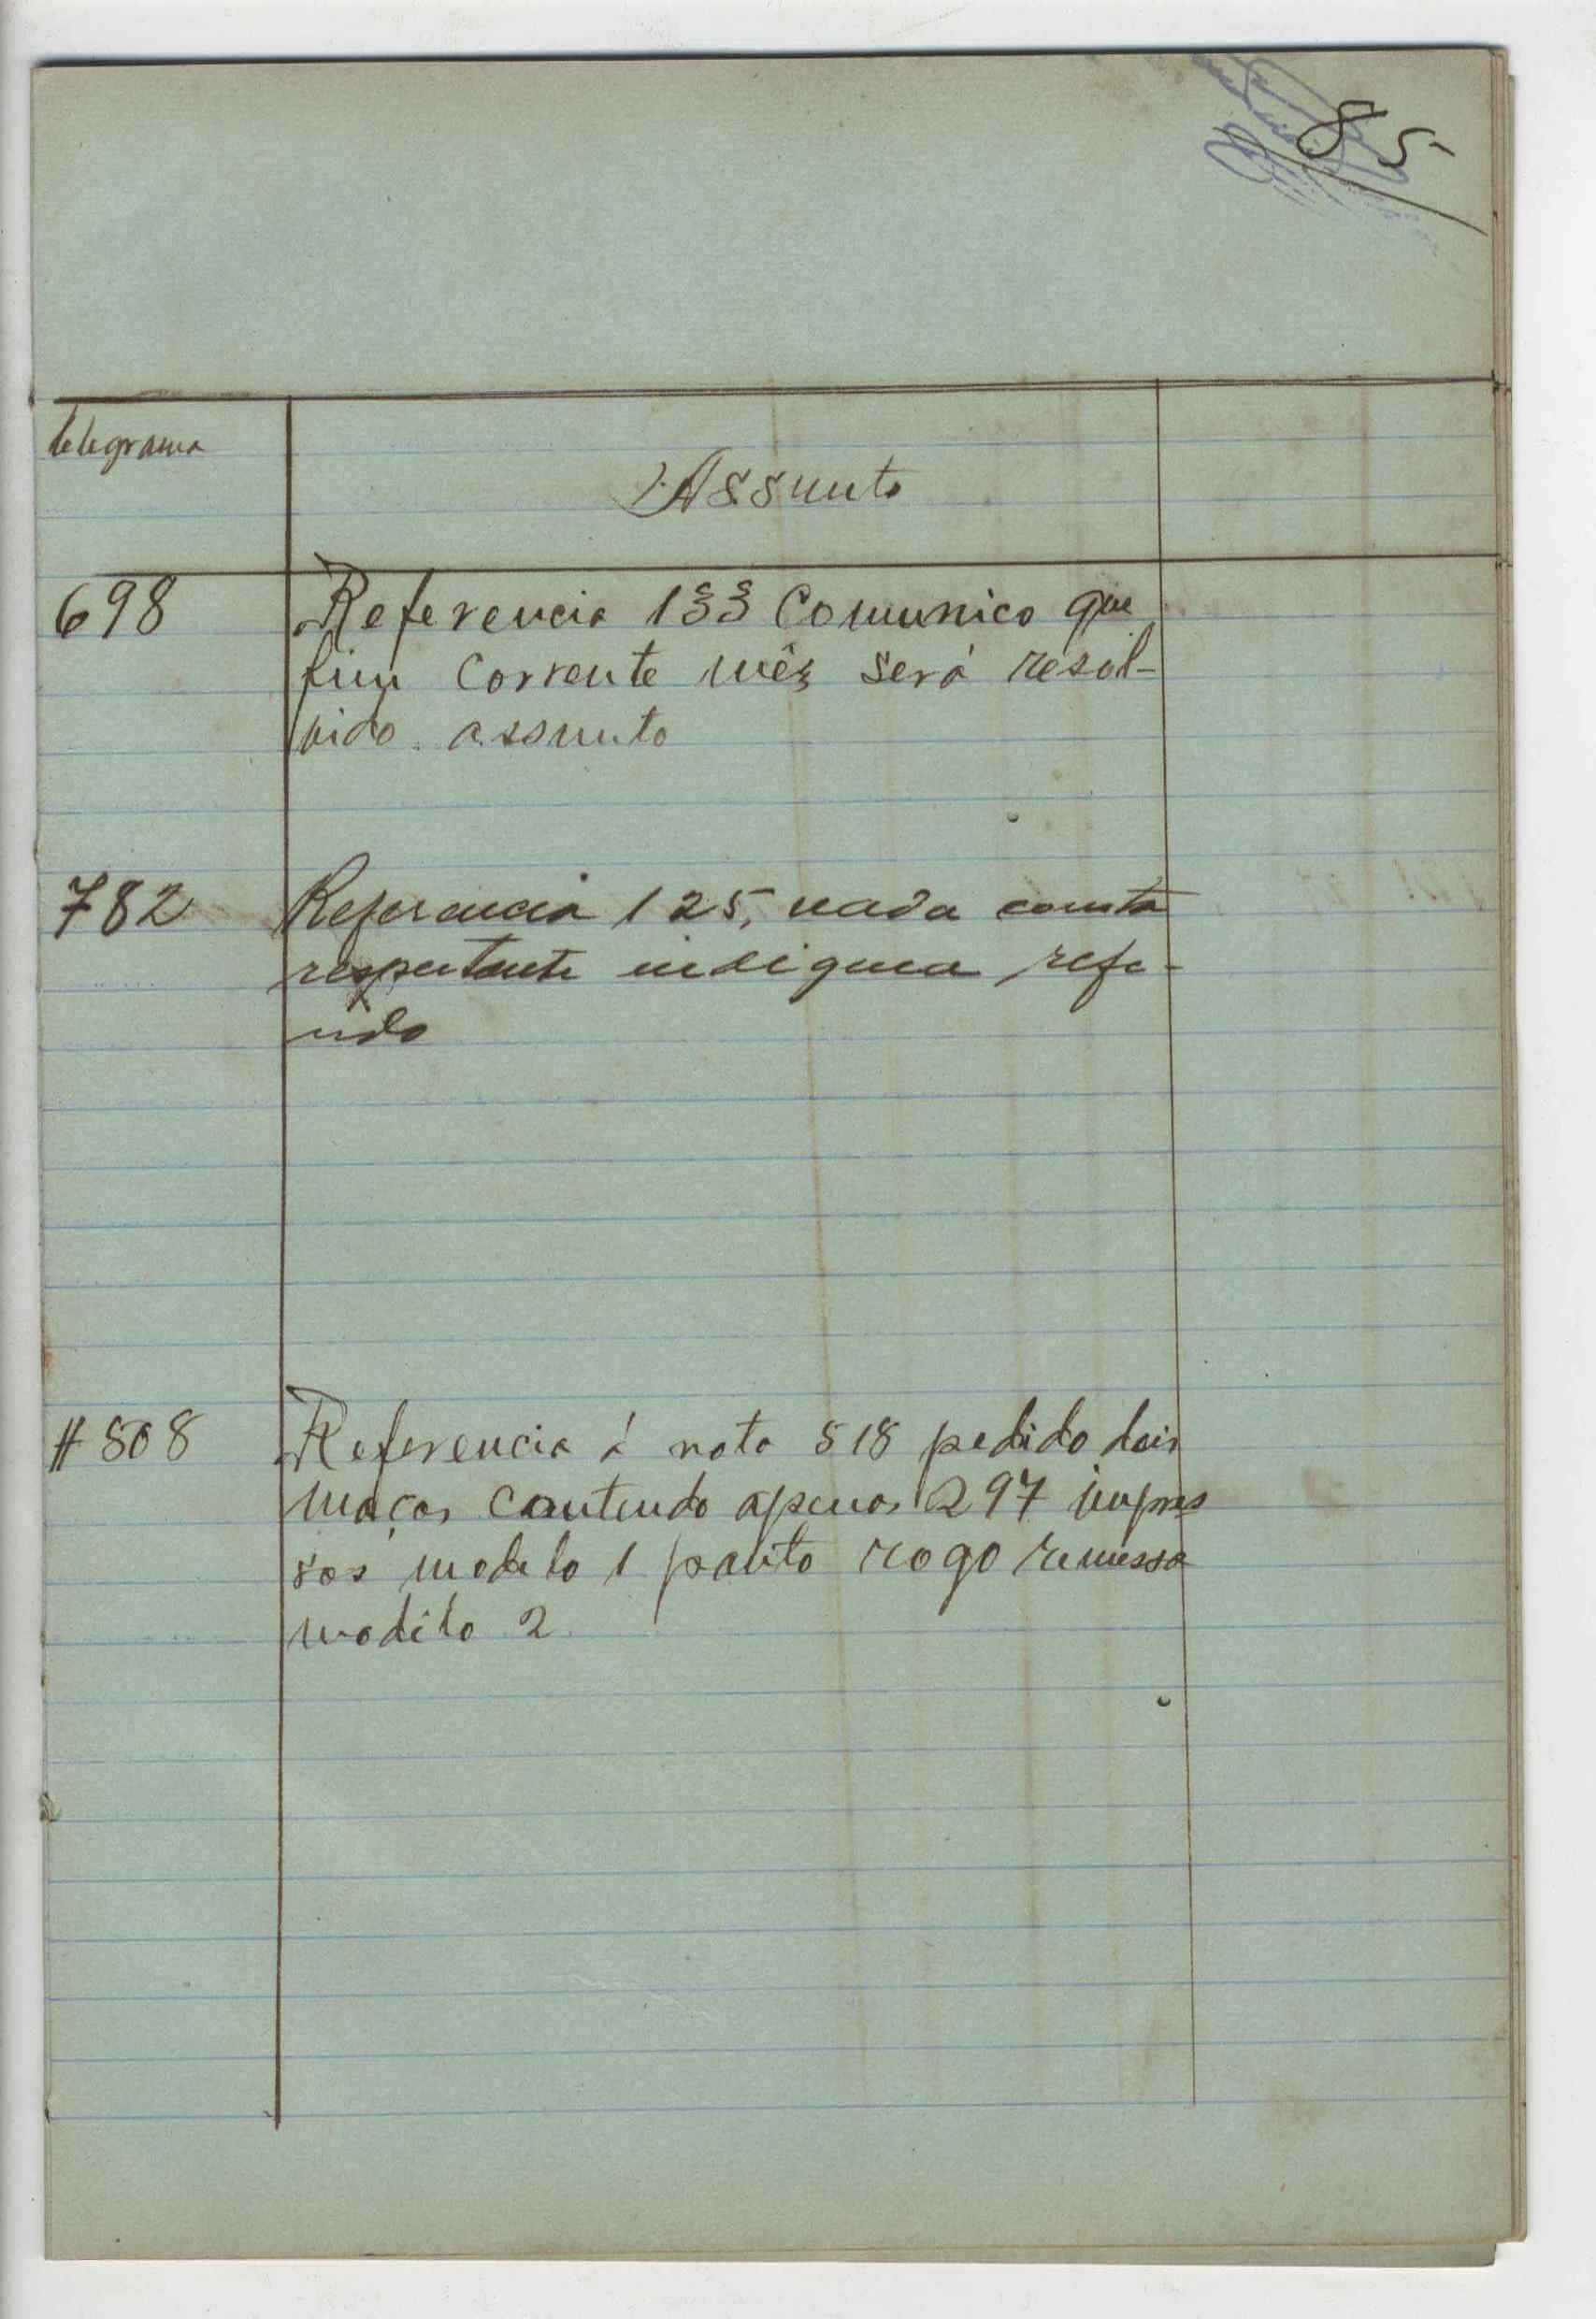 85
telegrama
Assunto
698 Referencia 133 Comunico que
fim corrente mês será resol-
vido assunto
782 Referencia 125, nada consta
respeitante indigena refe-
rido
# 808 Referencia á nota 518 pedido dois
maços contendo apenas 297 impres
sos modelo 1 ponto rogo remessa
modêlo 2